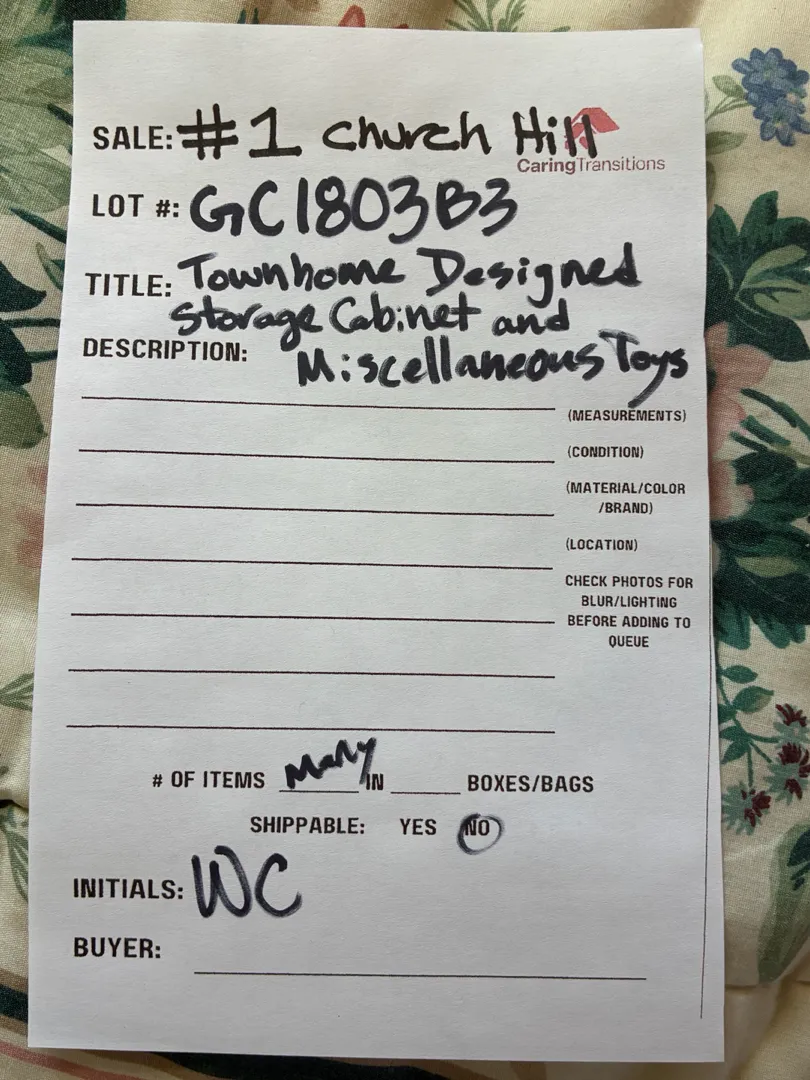 SALE: #1 Church Hill
CaringTransitions
LOT #: GC1803B3
TITLE: Townhome Designed
Storage Cabinet and
DESCRIPTION: Miscellaneous Toys
(MEASUREMENTS)
(CONDITION)
(MATERIAL/COLOR
/BRAND)
(LOCATION)
CHECK PHOTOS FOR
BLUR/LIGHTING
BEFORE ADDING TO
QUEUE
# OF ITEMS Many IN BOXES/BAGS
SHIPPABLE: YES NO
INITIALS: WC
BUYER: